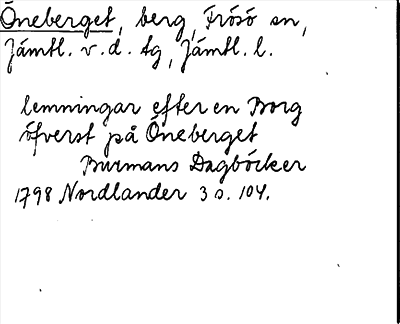 Öneberget, berg, Frösö sn,
Jämtl. v. d. tg, Jämtl. l.
lemningar efter en Borg
öfverst på Öneberget
Burmans Dagböcker
1798 Nordlander 3 s. 104.